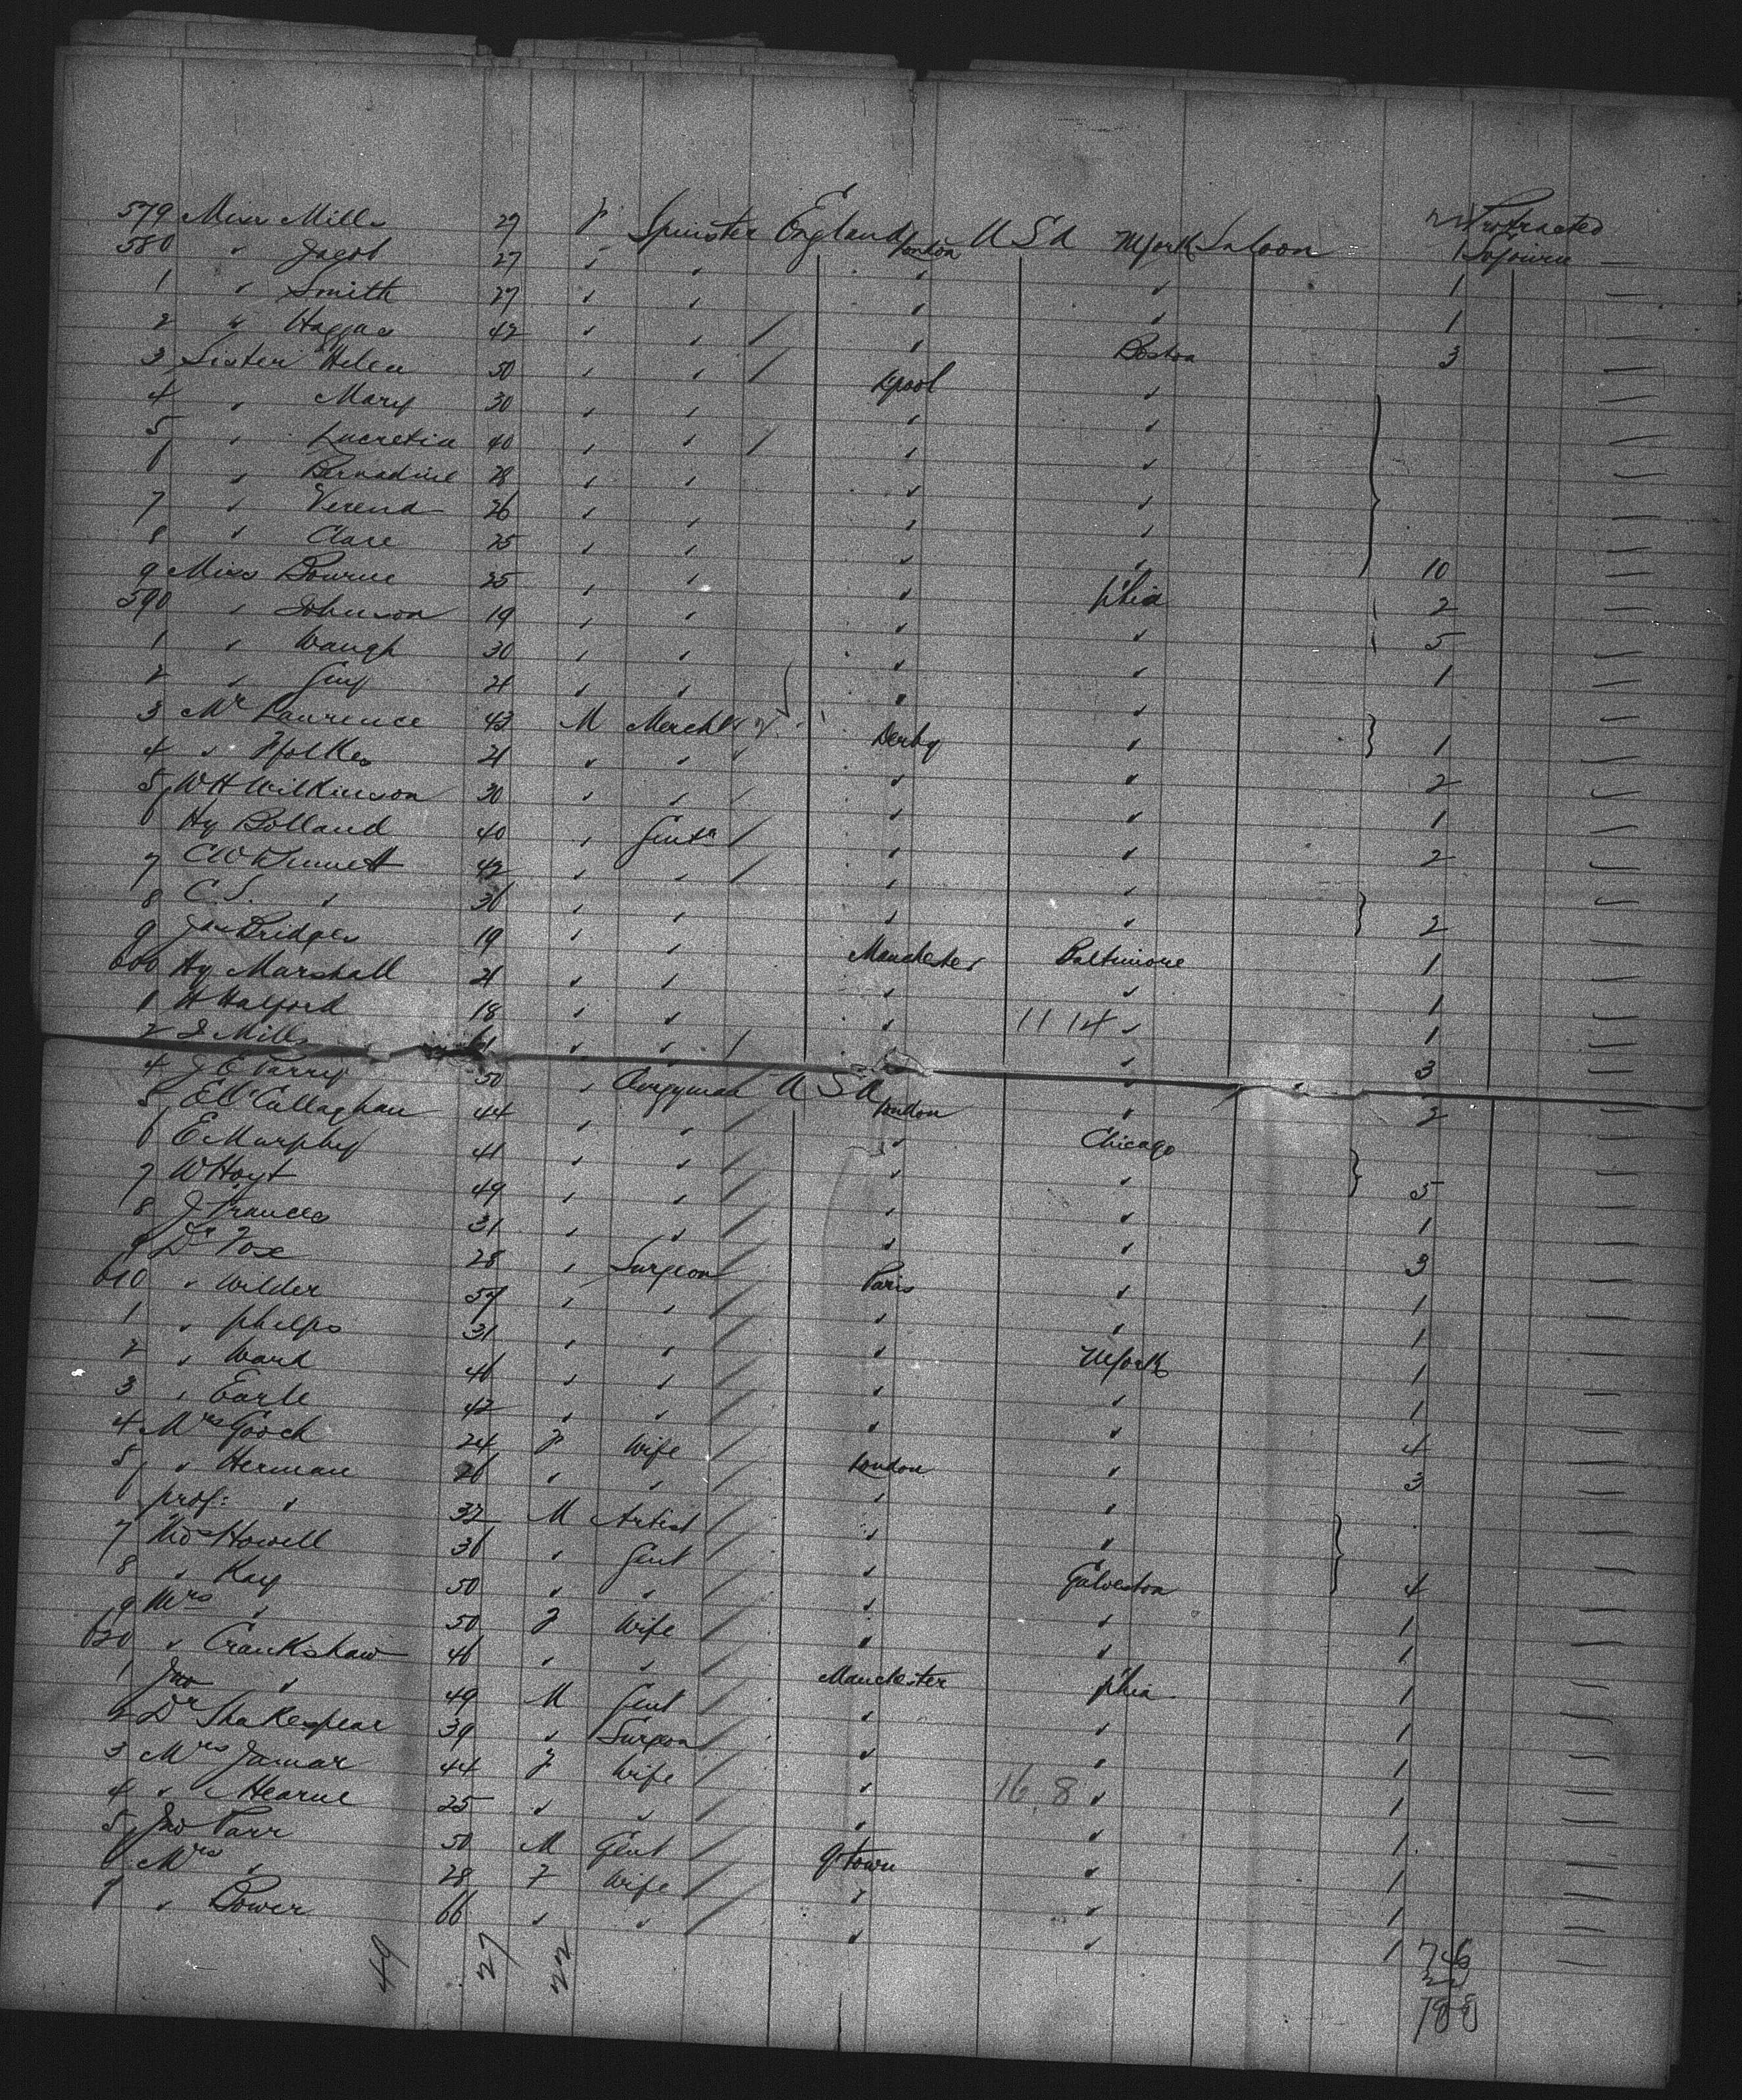 579 Miss Mills 27 F Spinster England London USA NYork Saloon Protracted
580 " Jacob 27 " " " " 1 Sojourn —
1 " Smith 27 " " " " 1 —
2 " 42 " " / " " 1 —
3 Sister Helen 50 " " / Lpool Boston 3 —
4 " Mary 30 " " " " —
5 " Lucretia 40 " " / " " —
6 " Bernadine 28 " " " " —
7 " Verena 26 " " " " —
8 " Clare 25 " " " " —
9 Miss Bourne 25 " " " " 10 —
590 " Johnson 19 " " " Phia 2 —
1 " Waugh 30 " " " " 5 —
2 " Guy 21 " " " " 1 —
3 Mr Lawrence 43 M Mercht Derby " —
4 " Ffolkes 21 " " " " 1 —
5 W H Wilkinson 30 " " / " " 2 —
6 Hy Bolland 40 " Gent / " " 1 —
7 C W Bennett 42 " " / " " 2 —
8 C. S. " 36 " " " " —
9 Jas Bridges 19 " " " " 2 —
600 Hy Marshall 21 " " Manchester Baltimore 1 —
1 H Halford 18 " " " " 1 —
2 J Mills 61 " " / " 11 14 " 1 —
4 J E Parry 50 " Clergyman USA " 3 —
5 E O'Callaghan 44 " " / London " 2 —
6 E Murphy 41 " " / " Chicago —
7 W Hoyt 49 " " / " " 5 —
8 J Frances 31 " " / " " 1 —
9 Dr Fox 28 " Surgeon / " " 3 —
610 " Wilder 57 " " / Paris " 1 —
1 " Phelps 31 " " / " " 1 —
2 " Ward 46 " " / " NYork 1 —
3 " Earle 42 " " / " " 1 —
4 Mrs Gooch 24 F Wife / " " 4 —
5 " Herman 26 " " / London " 3 —
6 prof: " 32 M Artist / " " —
7 Howell 36 " Gent / " " —
8 " Kay 50 " " / " Galveston 4 —
9 Mrs " 50 F Wife / " " 1 —
620 " Crankshaw 46 " " / " " 1 —
1 Jno " 49 M Gent / Manchester Phia 1 —
2 Dr Shakespear 39 " Surgeon / " " 1 —
3 Mrs Jamar 44 F Wife / " " 1 —
4 " Hearne 25 " " / " 16 8 " 1 —
5 Jno Parr 50 M Gent / " " 1 —
6 Mrs " 28 F Wife / Qtown " 1 —
7 " Power 66 " " / " " 1 —
49 27 22 " " 1 —